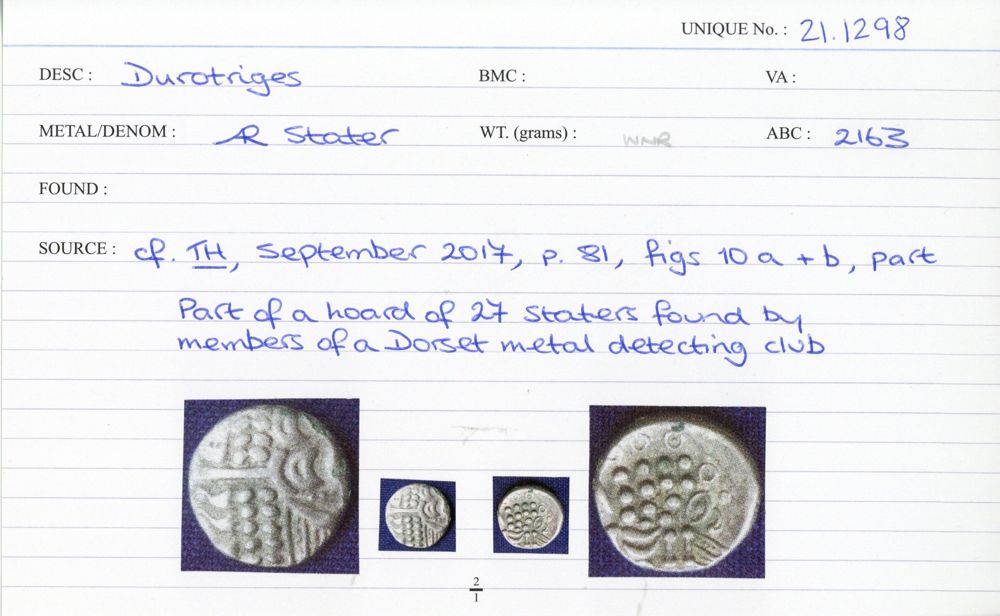 UNIQUE No. : 21.1298
DESC : Durotriges BMC : VA :
METAL/DENOM : AR Stater WT. (grams) : WNR ABC : 2163
FOUND :
SOURCE : cf. TH, September 2017, p. 81, figs 10 a + b, part
Part of a hoard of 27 staters found by
members of a Dorset metal detecting club
2
1